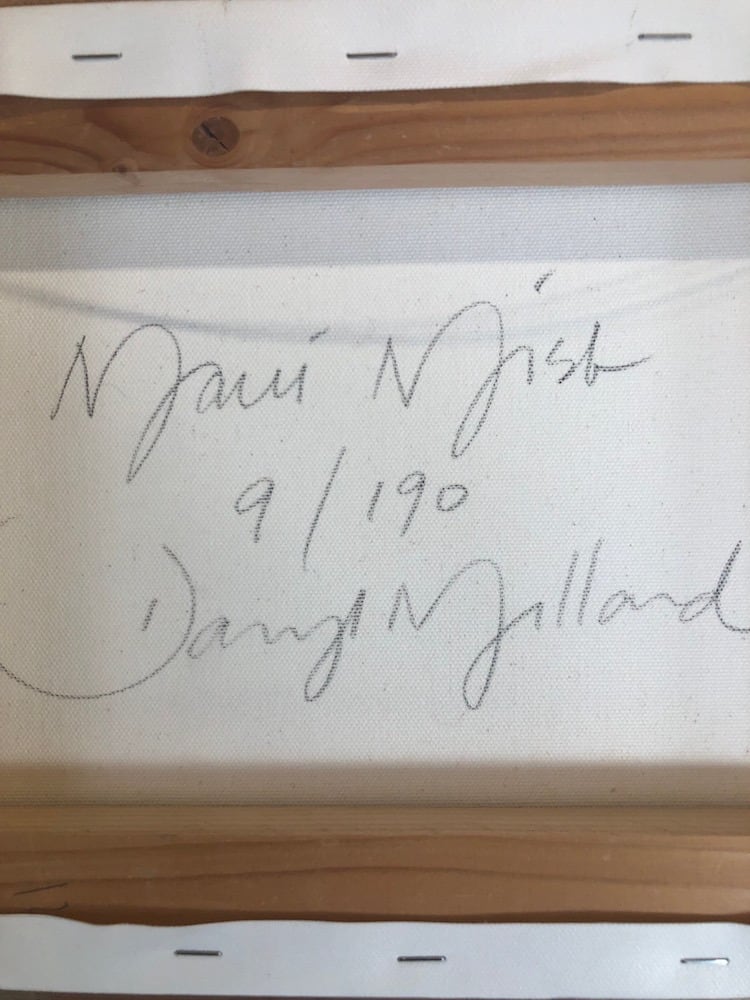 Maui Mist
9/190
Daryl Millard